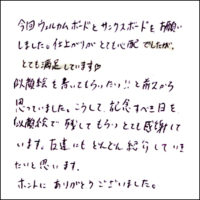 今回ウェルカムボードとサンクスボードを願い
しました。仕上がりがとても心配でしたが、
とても満足しています♡
似顔絵を書いてもらいたい!!と前から
思っていました。こうして、記念すべき日を
似顔絵で残してもらいとても感謝して
います。友達にもどんどん紹介していき
たいと思います。
ホントにありがとうございました。